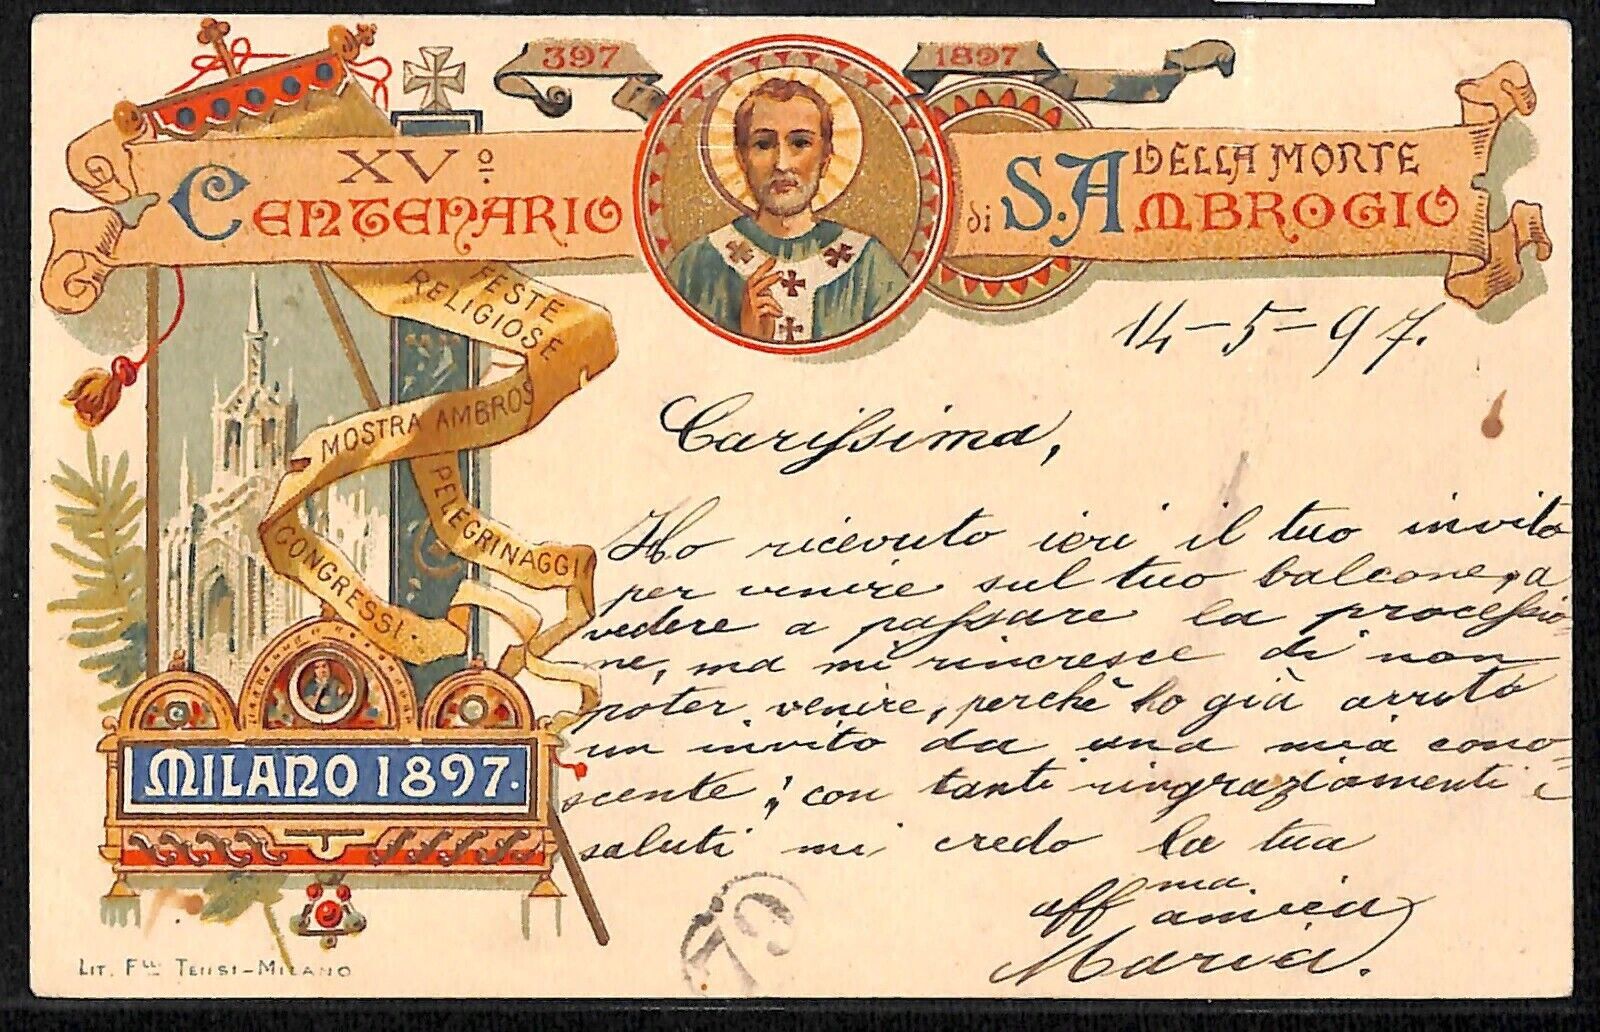 397 1897
XVº
CENTENARIO
DELLA MORTE
di S. AMBROGIO
FESTE
RELIGIOSE
MOSTRA AMBROS
PELEGRINAGGI
CONGRESSI
MILANO 1897.
LIT. FLLI TENSI-MILANO
14-5-97.
Carissima,
Ho ricevuto ieri il tuo invito
per venire sul tuo balcone, a
vedere a passare la processio=
ne, ma mi rincresce di non
poter venire, perchè ho già avuto
un invito da una mia cono=
scente; con tanti ringraziamenti e
saluti mi credo la tua
aff ma. amica
Maria.
79